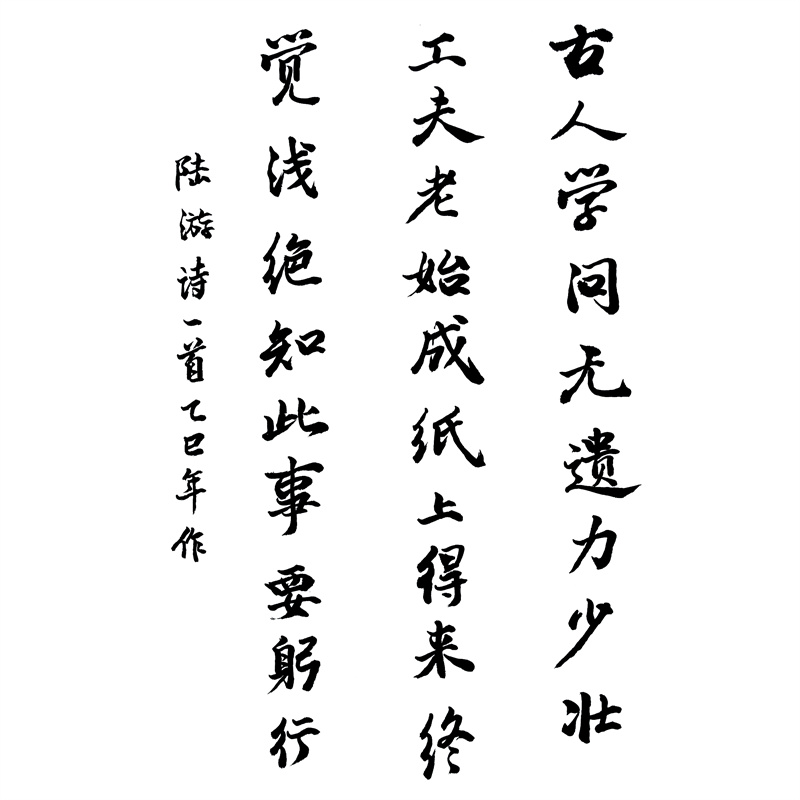 古人学问无遗力少壮
工夫老始成纸上得来终
觉浅绝知此事要躬行
陆游诗一首乙巳年作